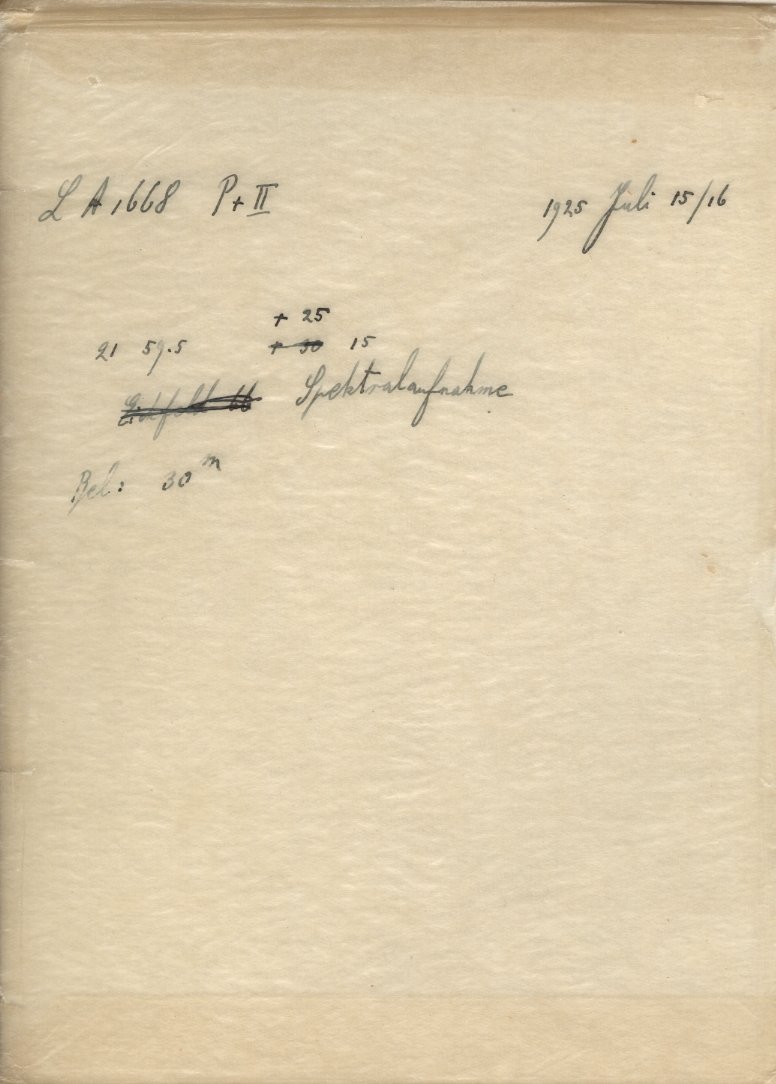 L A 1668 P + II 1925 Juli 15/16
+ 25
21 59.5 + 30 15
Eichfeld 66 Spektralaufnahme
Bel: 30 m